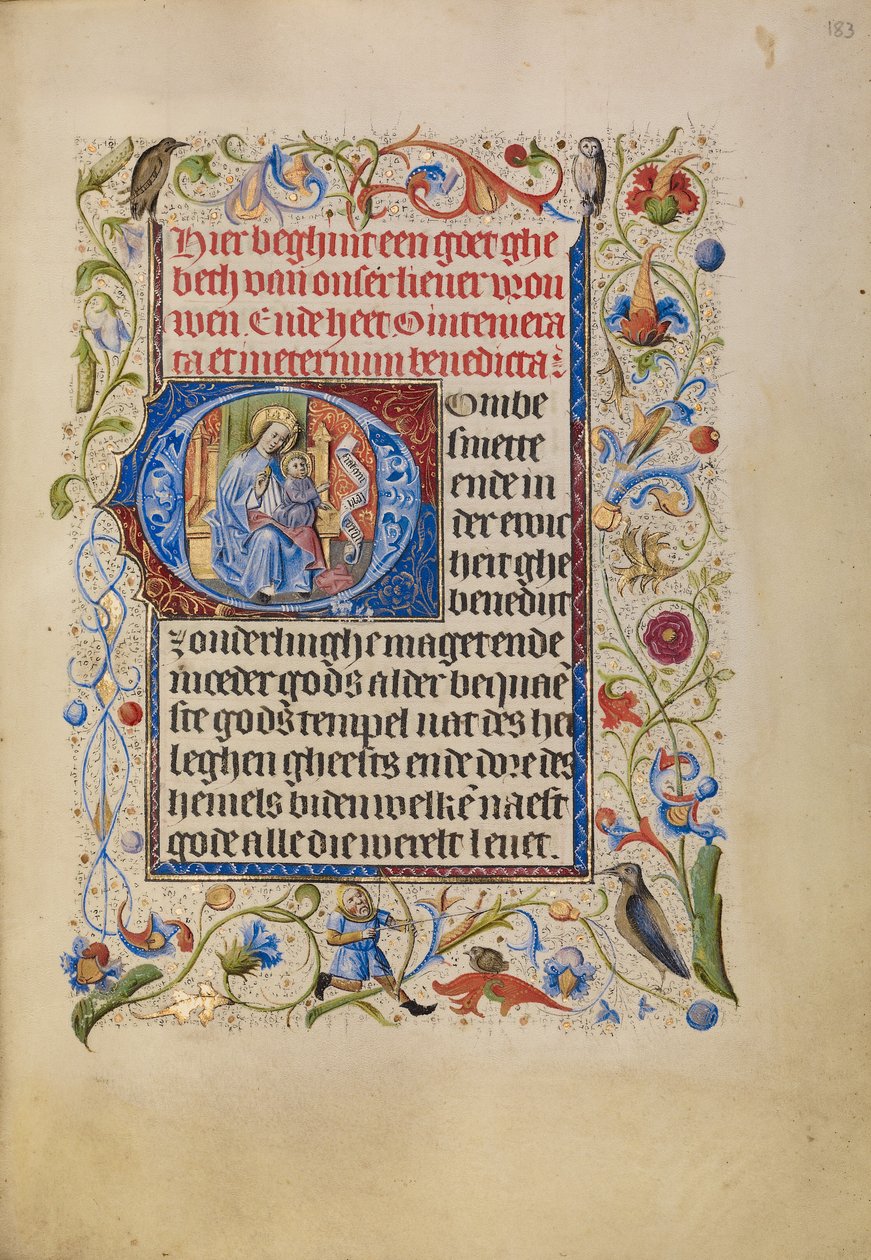 183
Hier beghint een goet ghe
beth van onser lieuer vrou
wen. Ende heet O intemera
ta et in eternum benedicta
Ombe
smette
ende in
der ewic
heit ghe
benedijt
zonderlinghe maget ende
moeder gods alder bequaē
ste gods tempel uat des hei
leghen gheests ende dore des
hemels biden welkē naest
gode alle die werelt leuet.